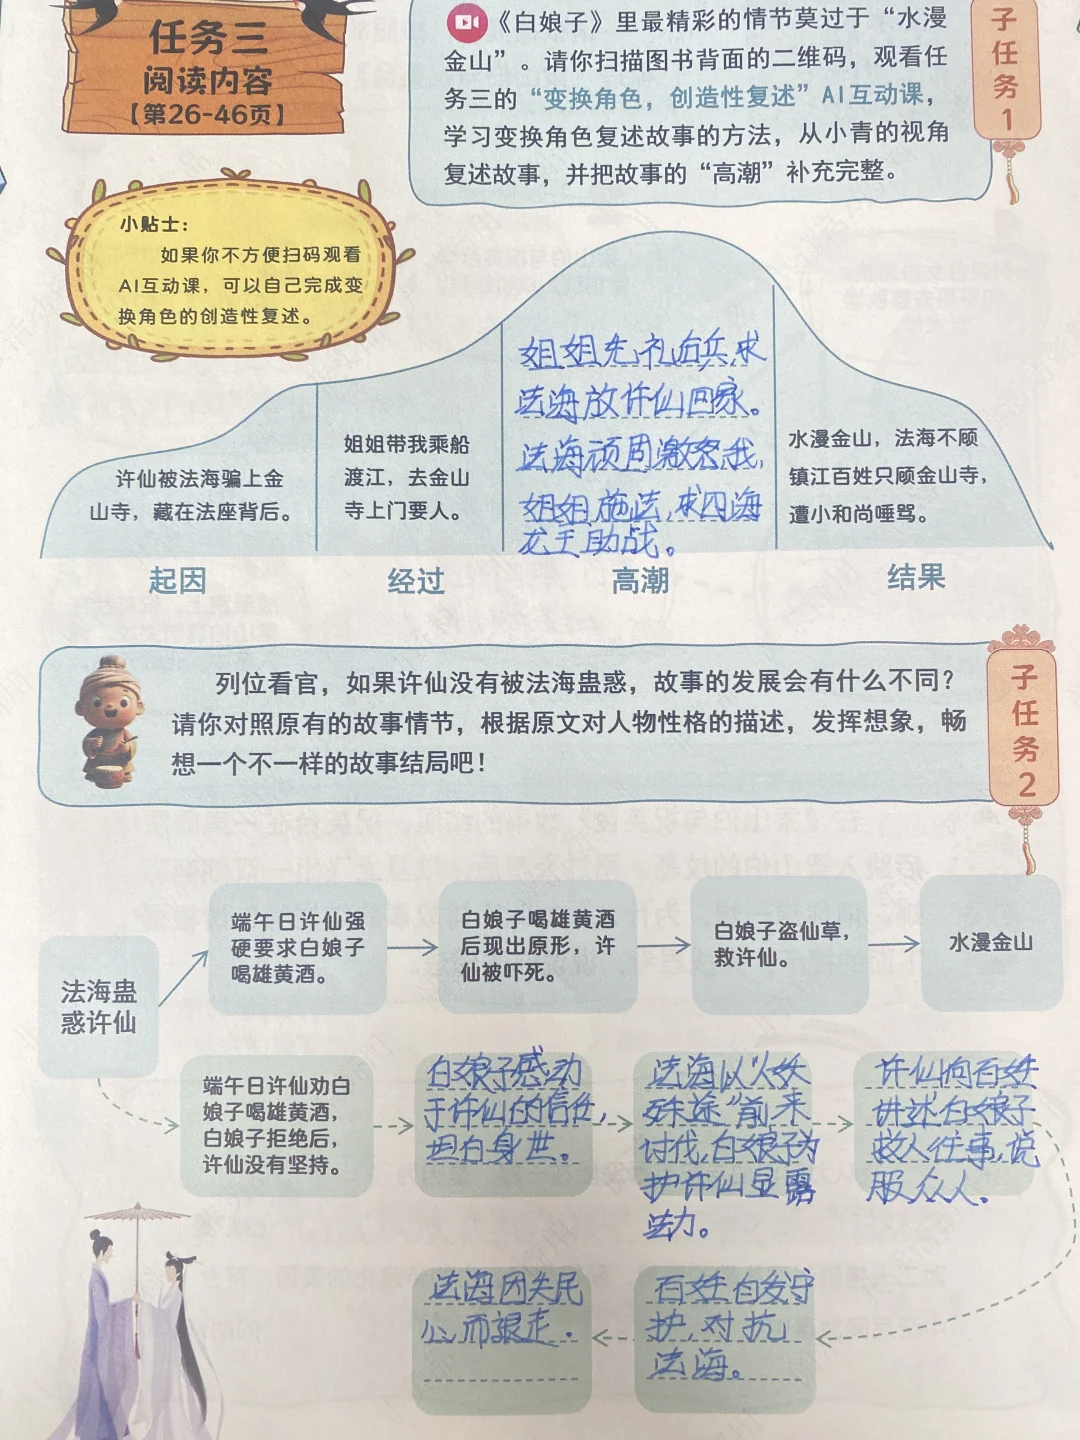 任务三
阅读内容
【第26-46页】
《白娘子》里最精彩的情节莫过于“水漫
金山”。请你扫描图书背面的二维码，观看任
务三的“变换角色，创造性复述”AI互动课，
学习变换角色复述故事的方法，从小青的视角
复述故事，并把故事的“高潮”补充完整。
子任务1
小贴士：
如果你不方便扫码观看
AI互动课，可以自己完成变
换角色的创造性复述。
许仙被法海骗上金
山寺，藏在法座背后。
起因
姐姐带我乘船
渡江，去金山
寺上门要人。
经过
姐姐先礼后兵，求
法海放许仙回家。
法海顽固激怒我，
姐姐施法，求四海
龙王助战。
高潮
水漫金山，法海不顾
镇江百姓只顾金山寺，
遭小和尚唾骂。
结果
列位看官，如果许仙没有被法海蛊惑，故事的发展会有什么不同？
请你对照原有的故事情节，根据原文对人物性格的描述，发挥想象，畅
想一个不一样的故事结局吧！
子任务2
法海蛊
惑许仙
端午日许仙强
硬要求白娘子
喝雄黄酒。
白娘子喝雄黄酒
后现出原形，许
仙被吓死。
白娘子盗仙草，
救许仙。
水漫金山
端午日许仙劝白
娘子喝雄黄酒，
白娘子拒绝后，
许仙没有坚持。
白娘子感动
于许仙的信任，
坦白身世。
法海以“人妖
殊途”前来
讨伐，白娘子为
护许仙显露
法力。
许仙向百姓
讲述白娘子
救人往事，说
服众人。
百姓自发守
护，对抗
法海。
法海因失民
心而狼走。